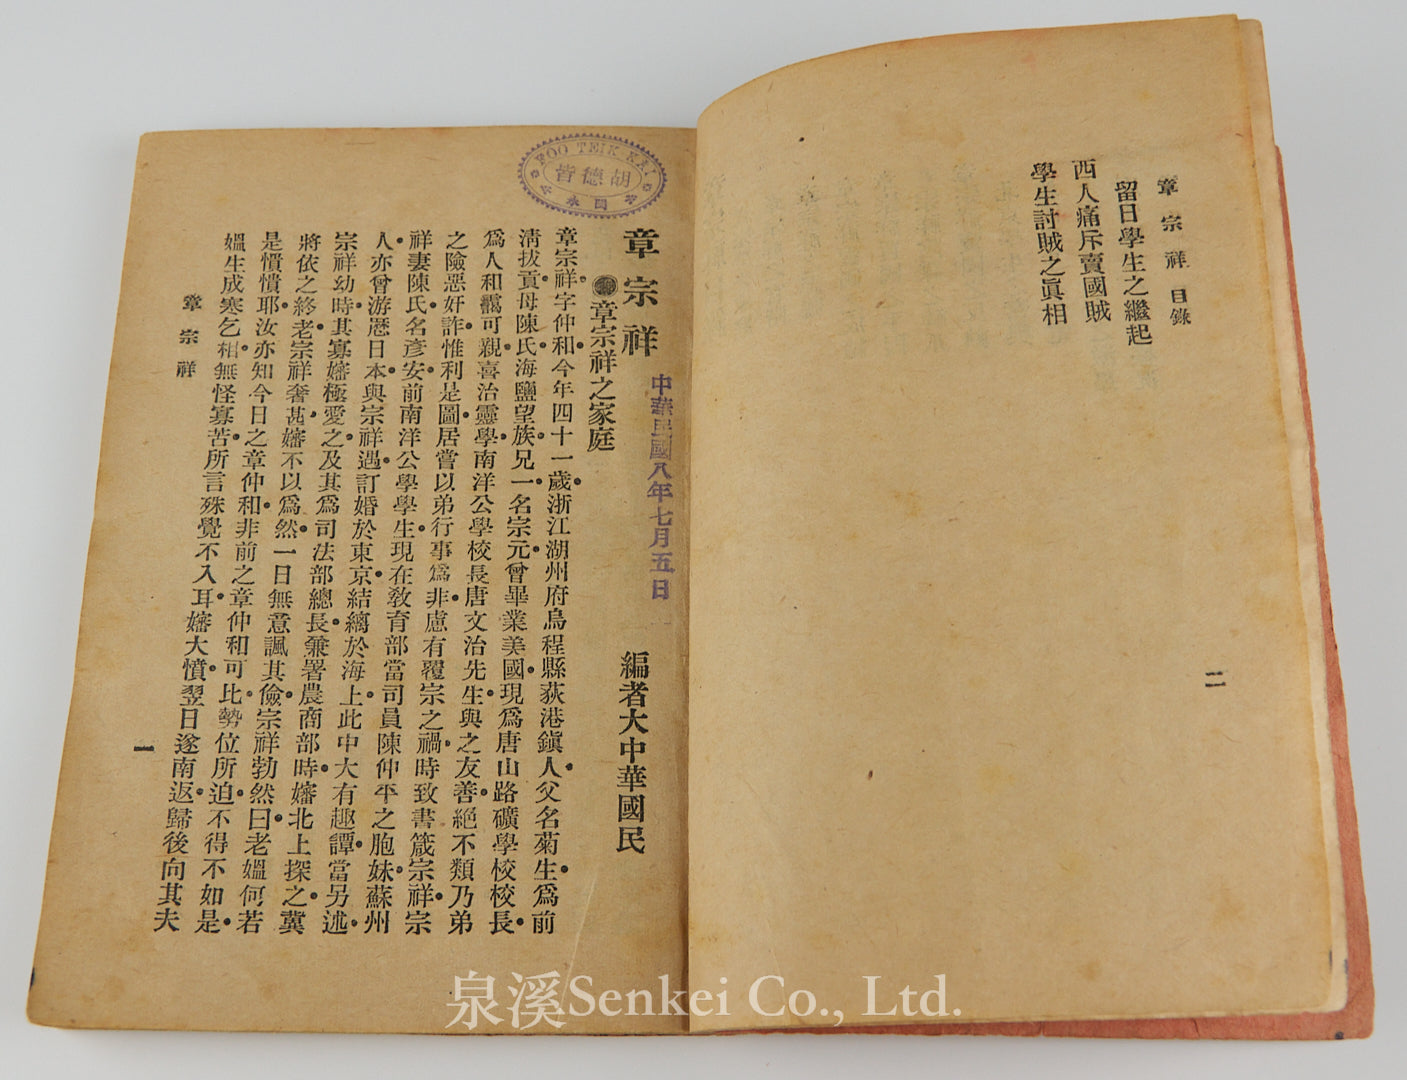 章宗祥目錄
留日學生之繼起
西人痛斥賣國賊
學生討賊之眞相
二
FOO TEIK KAI
胡德皆
章宗祥
編者大中華國民
中華民國八年七月五日
章宗祥之家庭
章宗祥字仲和今年四十一歲浙江湖州府烏程縣荻港鎭人父名菊生爲前
淸拔貢母陳氏海鹽望族兄一名宗元曾畢業美國現爲唐山路礦學校校長
爲人和靄可親喜治靈學南洋公學校長唐文治先生與之友善絕不類乃弟
之險惡奸詐惟利是圖居嘗以弟行事爲非慮有覆宗之禍時致書箴宗祥宗
祥妻陳氏名彥安前南洋公學學生現在敎育部當司員陳仲平之胞妹蘇州
人亦曾游歷日本與宗祥遇訂婚於東京結縭於海上此中大有趣譚當另述
宗祥幼時其寡嬸極愛之及其爲司法部總長兼署農商部時嬸北上探之冀
將依之終老宗祥奢甚嬸不以爲然一日無意諷其儉宗祥勃然曰老媼何若
是憒憒耶汝亦知今日之章仲和非前之章仲和可比勢位所迫不得不如是
媼生成寒乞相無怪寡苦所言殊覺不入耳嬸大憤翌日遂南返歸後向其夫
章宗祥
一
泉溪Senkei Co., Ltd.